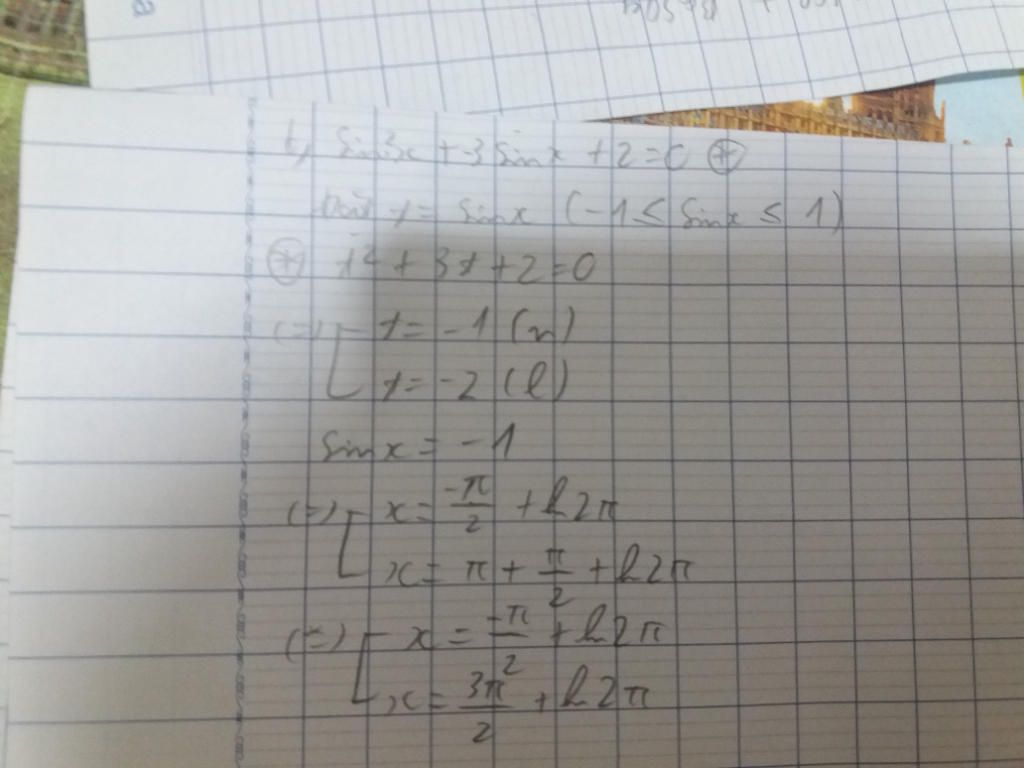 b, sin3x + 3 sinx + 2 = 0 (*)
Đặt t = sinx (-1 ≤ sinx ≤ 1)
(*) t² + 3t + 2 = 0
(=) [ t = -1 (n)
t = -2 (l)
sinx = -1
(=) [ x = -π/2 + k2π
x = π + π/2 + k2π
(=) [ x = -π/2 + k2π
x = 3π/2 + k2π